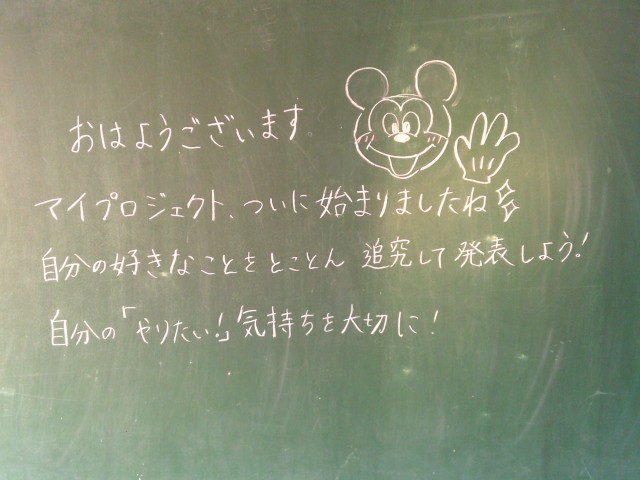 おはようございます
マイプロジェクト、ついに始まりましたね
自分の好きなことをとことん 追究して発表しよう!
自分の「やりたい!」気持ちを大切に!